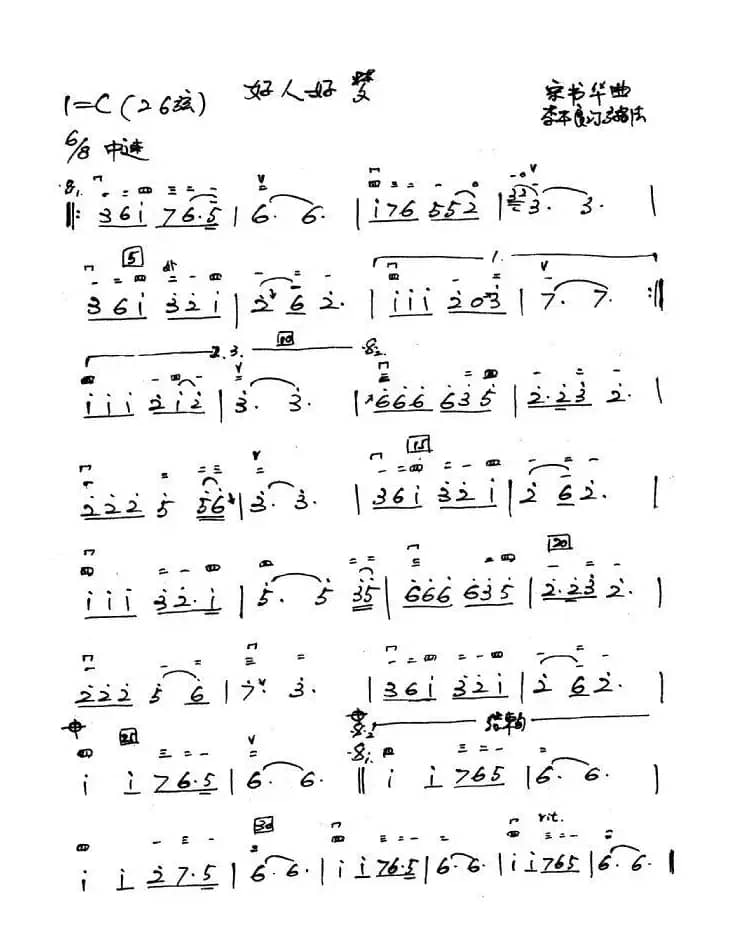 好人好梦
1=C(26弦)
宋书华曲
6/8 中速
𝄋1. ‖: 3 6 i 7 6·5 | 6· 6· | i 7 6 5 5 2 | 3· 3· |
5
3 6 i 3 2 i | 2 6 2· | i i i 2 0 3 | 7· 7· :‖
1.
2.3. 10 𝄋2.
i i i 2 i 2 | 3· 3· | 6 6 6 6 3 5 | 2·2 3 2· |
15
2 2 2 5 5 6 | 3· 3· | 3 6 i 3 2 i | 2 6 2· |
20
i i i 3 2·i | 5· 5 3 5 | 6 6 6 6 3 5 | 2·2 3 2· |
2 2 2 5 6 | 7 3· | 3 6 i 3 2 i | 2 6 2· |
25 𝄋2 𝄋1.
i i 7 6·5 | 6· 6· ‖ i i 7 6 5 | 6· 6· |
30 rit.
i i 2 7·5 | 6· 6· | i i 7 6·5 | 6· 6· | i i 7 6 5 | 6· 6· ‖